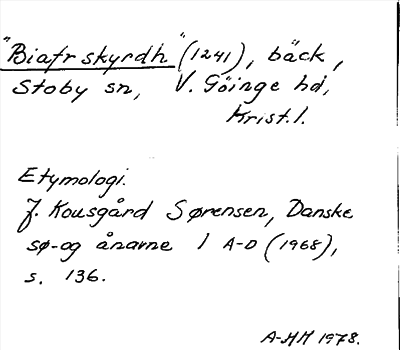 "Biafr skyrdh" (1241), bäck,
Stoby sn, V. Göinge hd,
Krist. l.
Etymologi.
J. Kousgård Sørensen, Danske
sø- og ånavne 1 A-D (1968),
s. 136.
A-HH 1978.